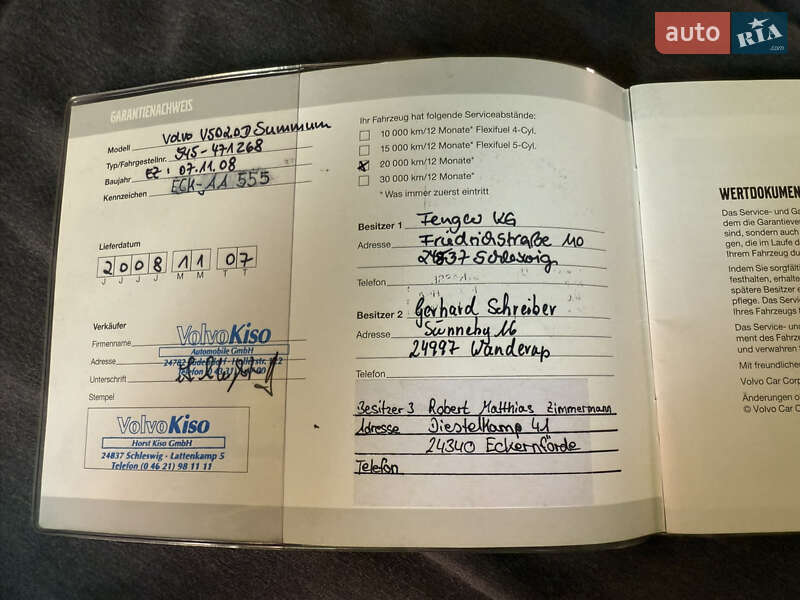 auto RIA.com
GARANTIENACHWEIS
Modell Volvo V50 2.0D Summum
Typ/Fahrgestellnr. 545-471268
Baujahr EZ: 07.11.08
Kennzeichen ECK-JJ 555
Lieferdatum
2008 11 07
J J J J M M T T
Verkäufer
VolvoKiso
Firmenname
Automobile GmbH
Adresse
Unterschrift
Stempel
VolvoKiso
Horst Kiso GmbH
24837 Schleswig - Lattenkamp 5
Telefon (0 46 21) 98 11 11
Ihr Fahrzeug hat folgende Serviceabstände:
10 000 km/12 Monate* Flexifuel 4-Cyl.
15 000 km/12 Monate* Flexifuel 5-Cyl.
x 20 000 km/12 Monate*
30 000 km/12 Monate*
*Was immer zuerst eintritt
Besitzer 1 KG
Adresse Friedrichstraße 110
24837 Schleswig
Telefon
Besitzer 2 Gerhard Schreiber
Adresse Sünneby 16
24997 Wanderup
Telefon
Besitzer 3 Robert Matthias Zimmermann
Adresse Diestelkamp 41
24340 Eckernförde
Telefon
WERTDOKUMEN
Das Service- und Ga
dem die Garantiever
sind, sondern auch
gen, die im Laufe d
Ihrem Fahrzeug du
Indem Sie sorgfält
festhalten, erhalte
spätere Besitzer
pflege. Das Servi
Ihres Fahrzeugs
Das Service- un
ment des Fahrze
und verwahren
Mit freundlicher
Volvo Car Corp
Änderungen o
© Volvo Car C